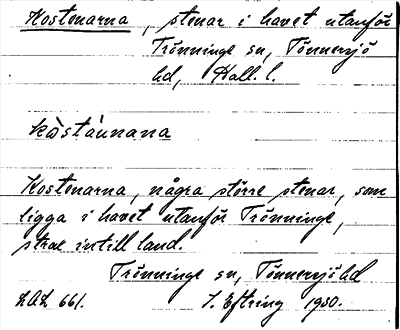 Kostenarna, stenar i havet utanför
Trönninge sn, Tönnersjö
hd, Hall. l.
kòstá̀unana
Kostenarna, några större stenar, som
ligga i havet utanför Trönninge,
strax intill land.
Trönninge sn, Tönnersjö hd
LAL 661. J. Eftring 1950.